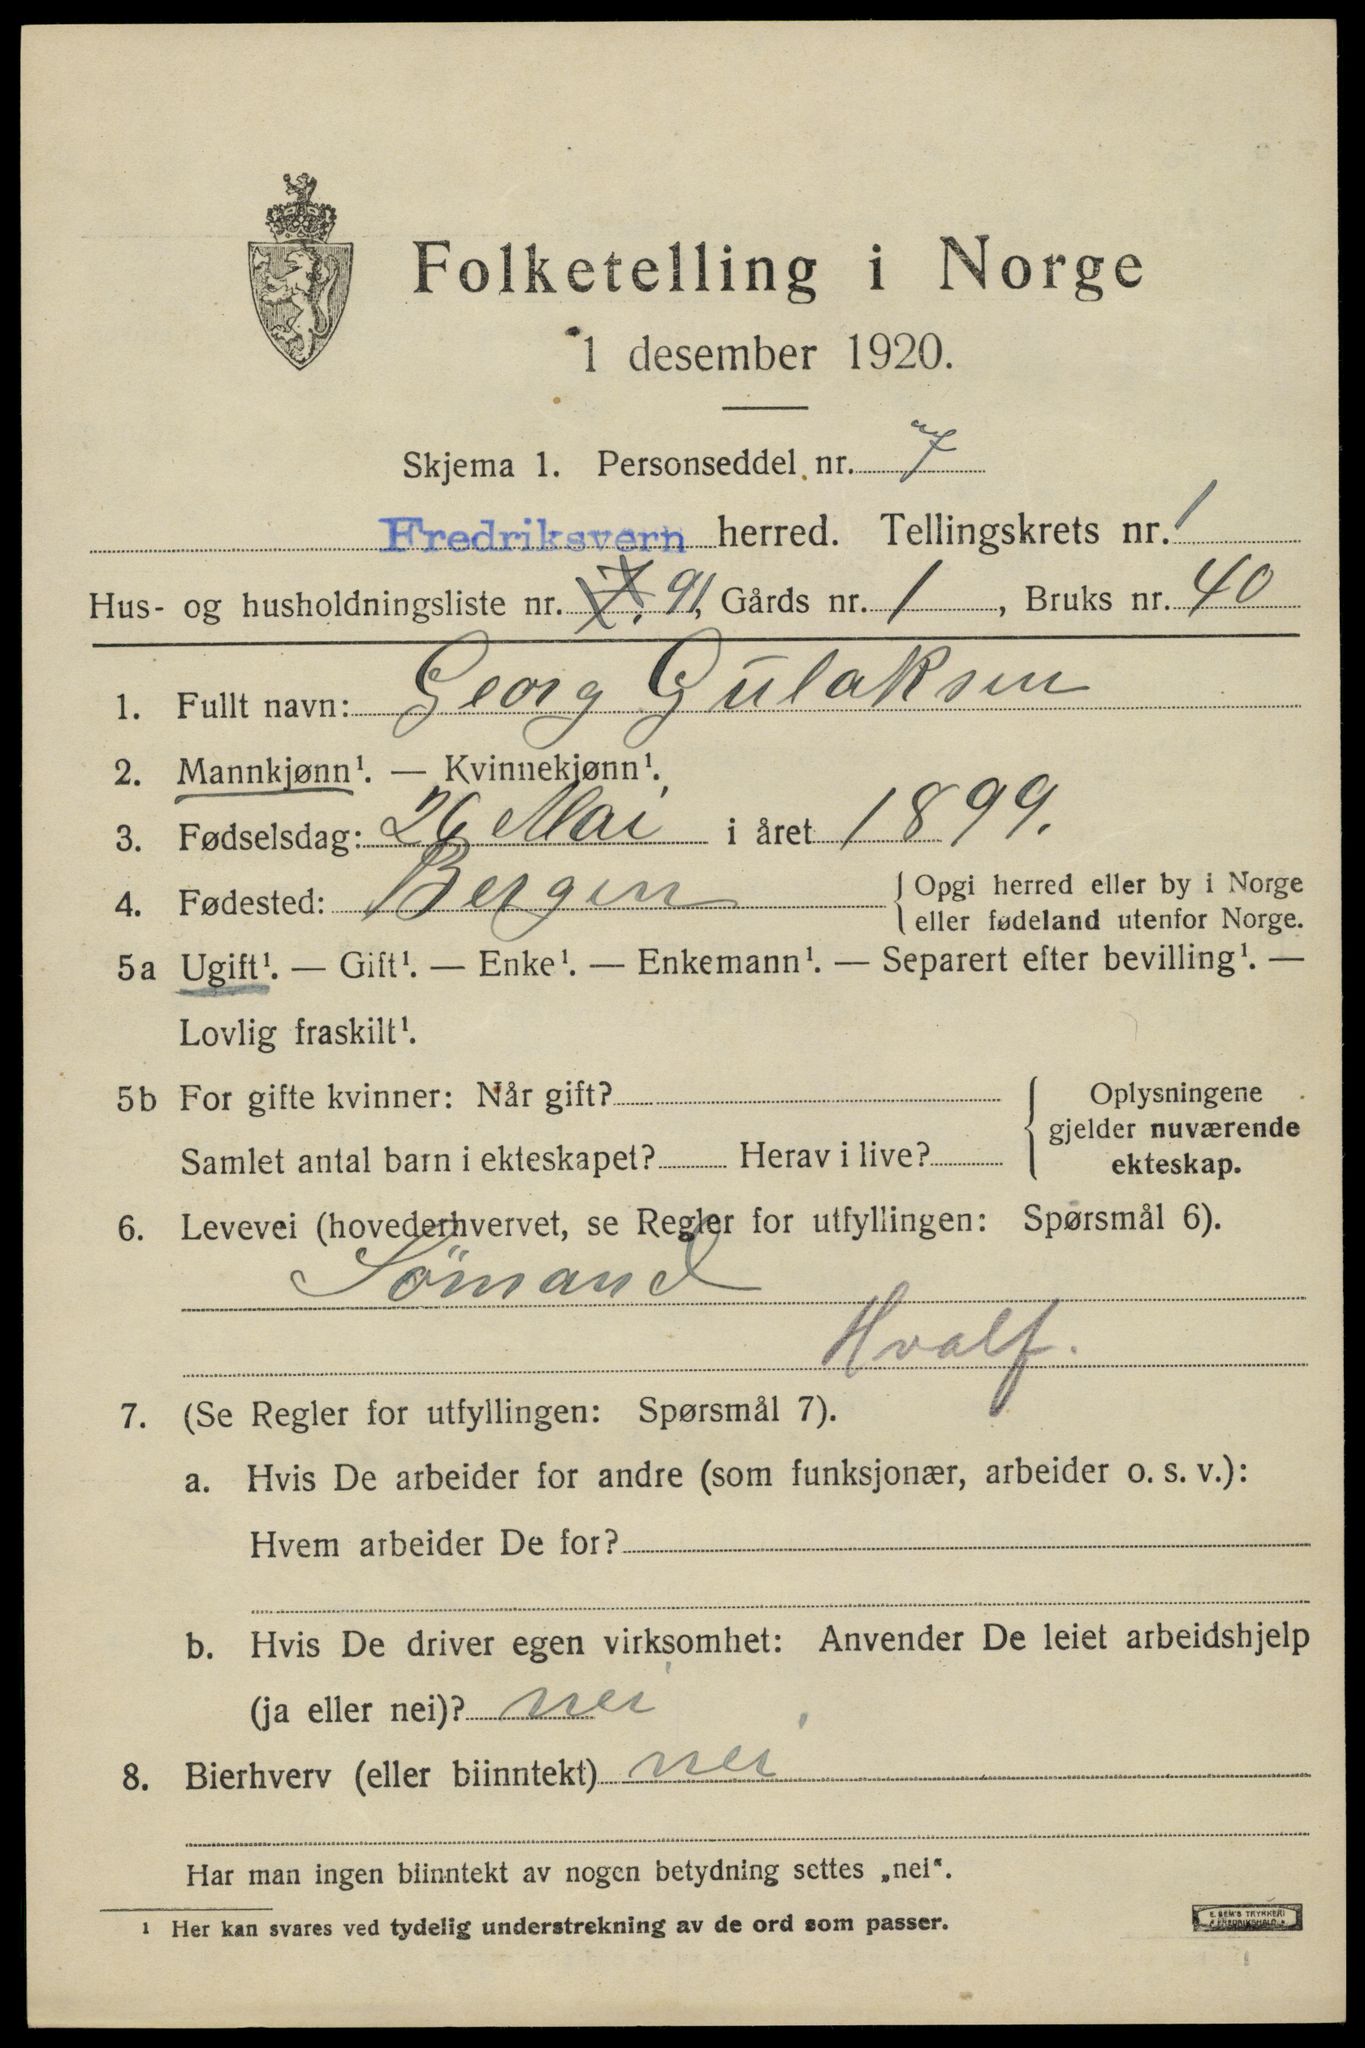 Folketelling i Norge
1 desember 1920.
Skjema 1. Personseddel nr. 7
Fredriksvern herred. Tellingskrets nr. 1
Hus- og husholdningsliste nr. 7. 91, Gårds nr. 1, Bruks nr. 40
1. Fullt navn: Georg Gulaksen
2. Mannkjønn¹. — Kvinnekjønn¹.
3. Fødselsdag: 26 Mai i året 1899.
4. Fødested: Bergen { Opgi herred eller by i Norge
eller fødeland utenfor Norge.
5a Ugift¹. — Gift¹. — Enke¹. — Enkemann¹. — Separert efter bevilling¹. —
Lovlig fraskilt¹.
5b For gifte kvinner: Når gift?
Samlet antal barn i ekteskapet? Herav i live?
Oplysningene
gjelder nuværende
ekteskap.
6. Levevei (hovederhvervet, se Regler for utfyllingen: Spørsmål 6).
Sömand
Hvalf.
7. (Se Regler for utfyllingen: Spørsmål 7).
a. Hvis De arbeider for andre (som funksjonær, arbeider o. s. v.):
Hvem arbeider De for?
b. Hvis De driver egen virksomhet: Anvender De leiet arbeidshjelp
(ja eller nei)? nei
8. Bierhverv (eller biinntekt) nei
Har man ingen biinntekt av nogen betydning settes „nei“.
¹ Her kan svares ved tydelig understrekning av de ord som passer.
E. SEM'S TRYKKERI
FREDRIKSHALD